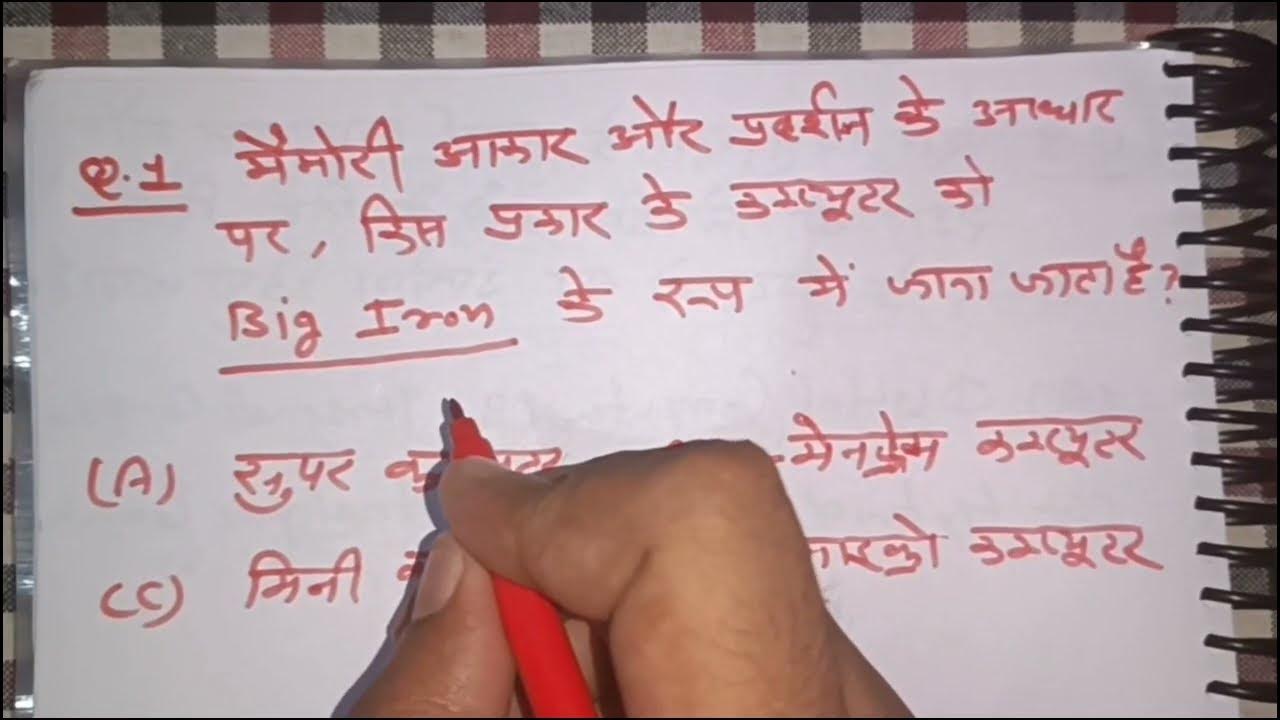 Q.1 मैमोरी आकार और प्रदर्शन के आधार
पर, किस प्रकार के कम्प्यूटर को
Big Iron के रूप में जाना जाता है?
(A) सुपर मेनफ्रेम कम्प्यूटर
(C) मिनी माइक्रो कम्प्यूटर